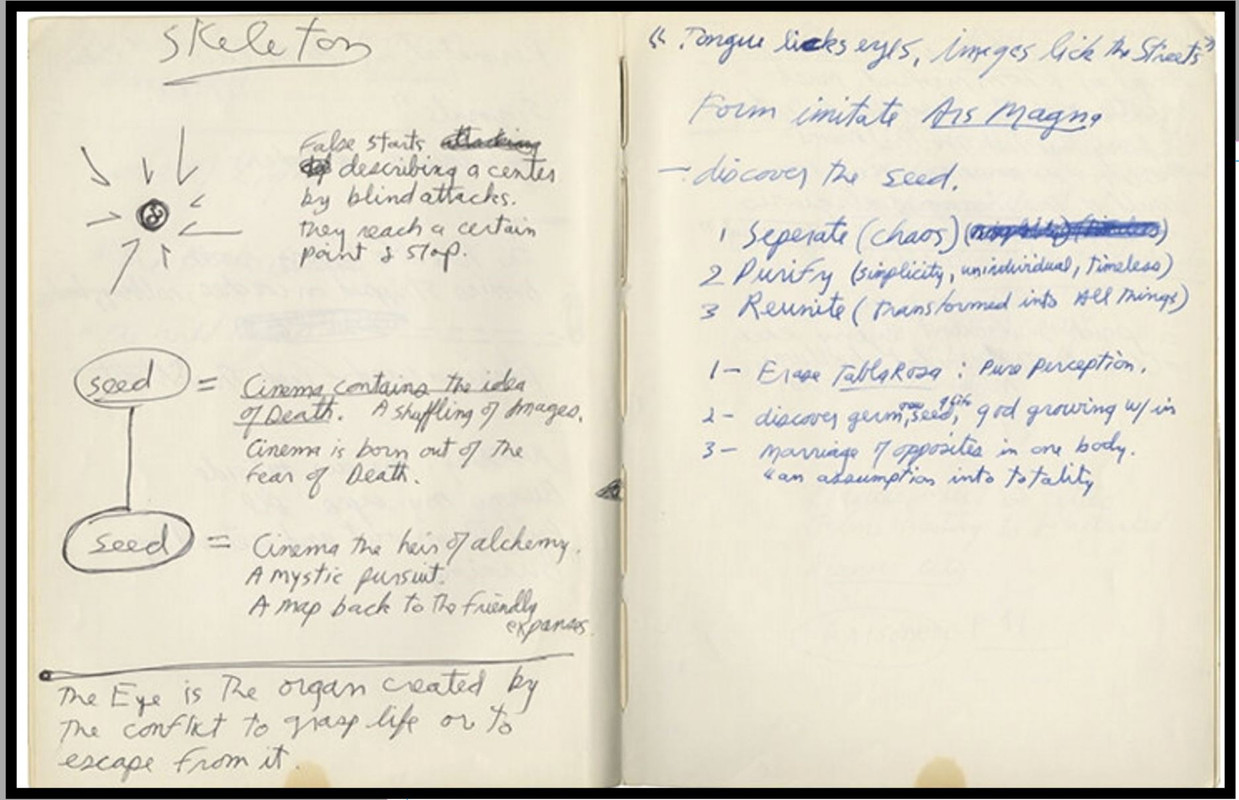 Skeleton
False starts attacking
describing a center
by blind attacks.
they reach a certain
point & stop.
seed = Cinema contains the idea
of Death. A shuffling of Images.
Cinema is born out of the
Fear of Death.
seed = Cinema the heir of alchemy.
A mystic pursuit.
A map back to the friendly
expanses.
The Eye is The organ created by
The conflict to grasp life or to
escape from it.
"Tongue licks eyes, images lick the Streets"
Form imitate Ars Magna
- discover the seed.
1 Seperate (chaos)
2 Purify (simplicity, unindividual, Timeless)
3 Reunite (Transformed into All Things)
1- Erase Tabla Rosa : Pure Perception.
2- discover germ, seed, god growing w/in
3- marriage of opposites in one body.
"an assumption into totality